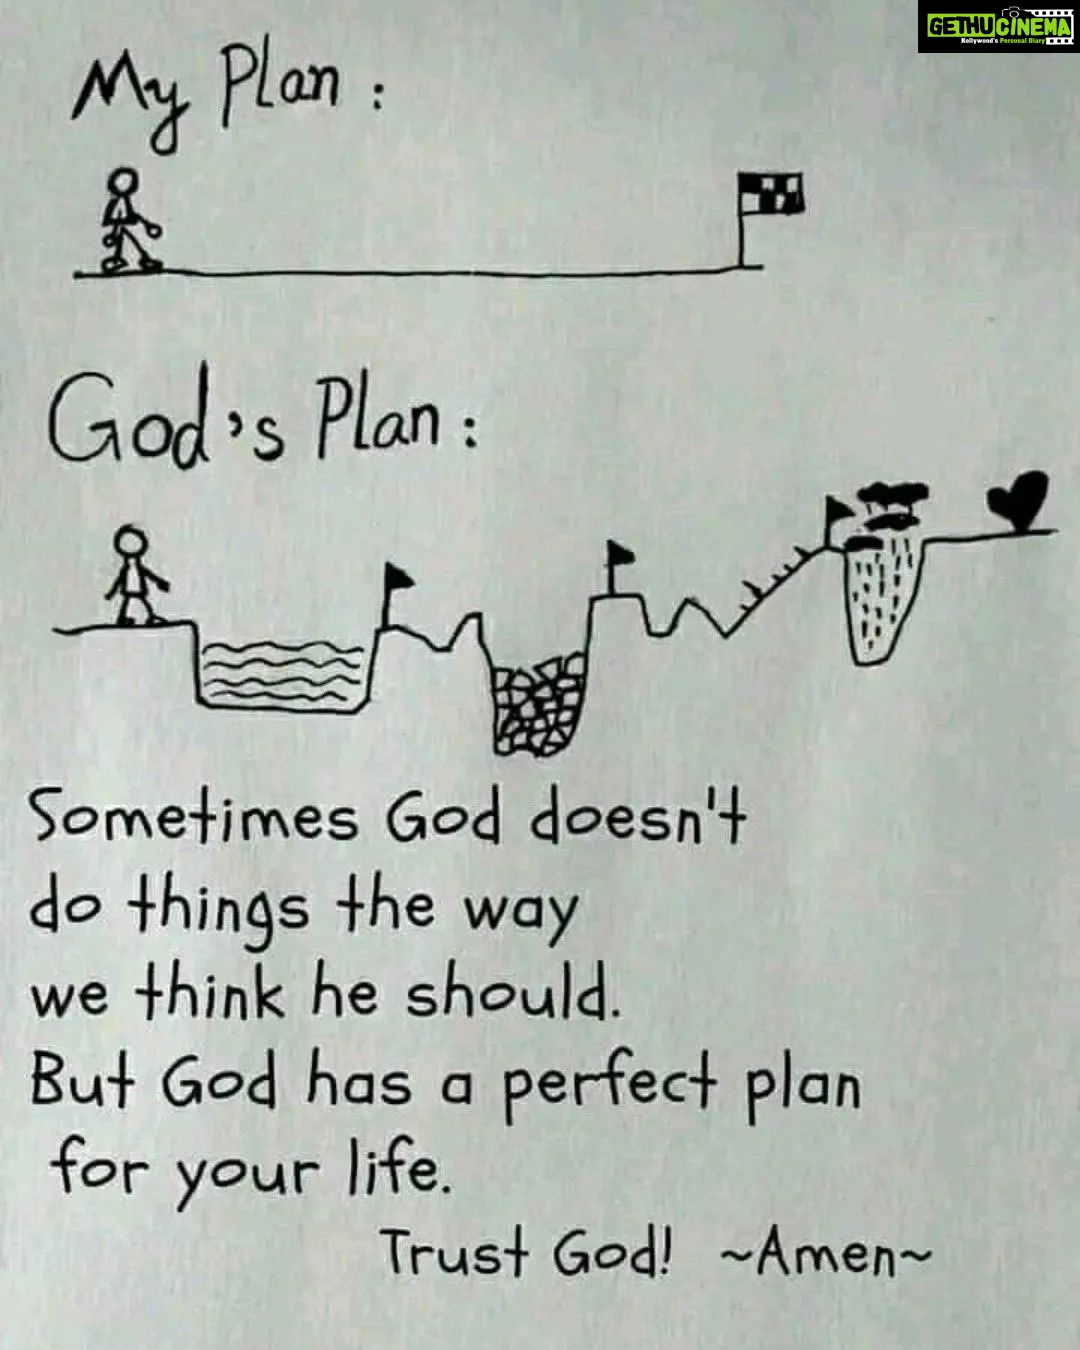 GETHUCINEMA
Kollywood's Personal Diary
My Plan :
God's Plan :
Sometimes God doesn't
do things the way
we think he should.
But God has a perfect plan
for your life.
Trust God! ~Amen~